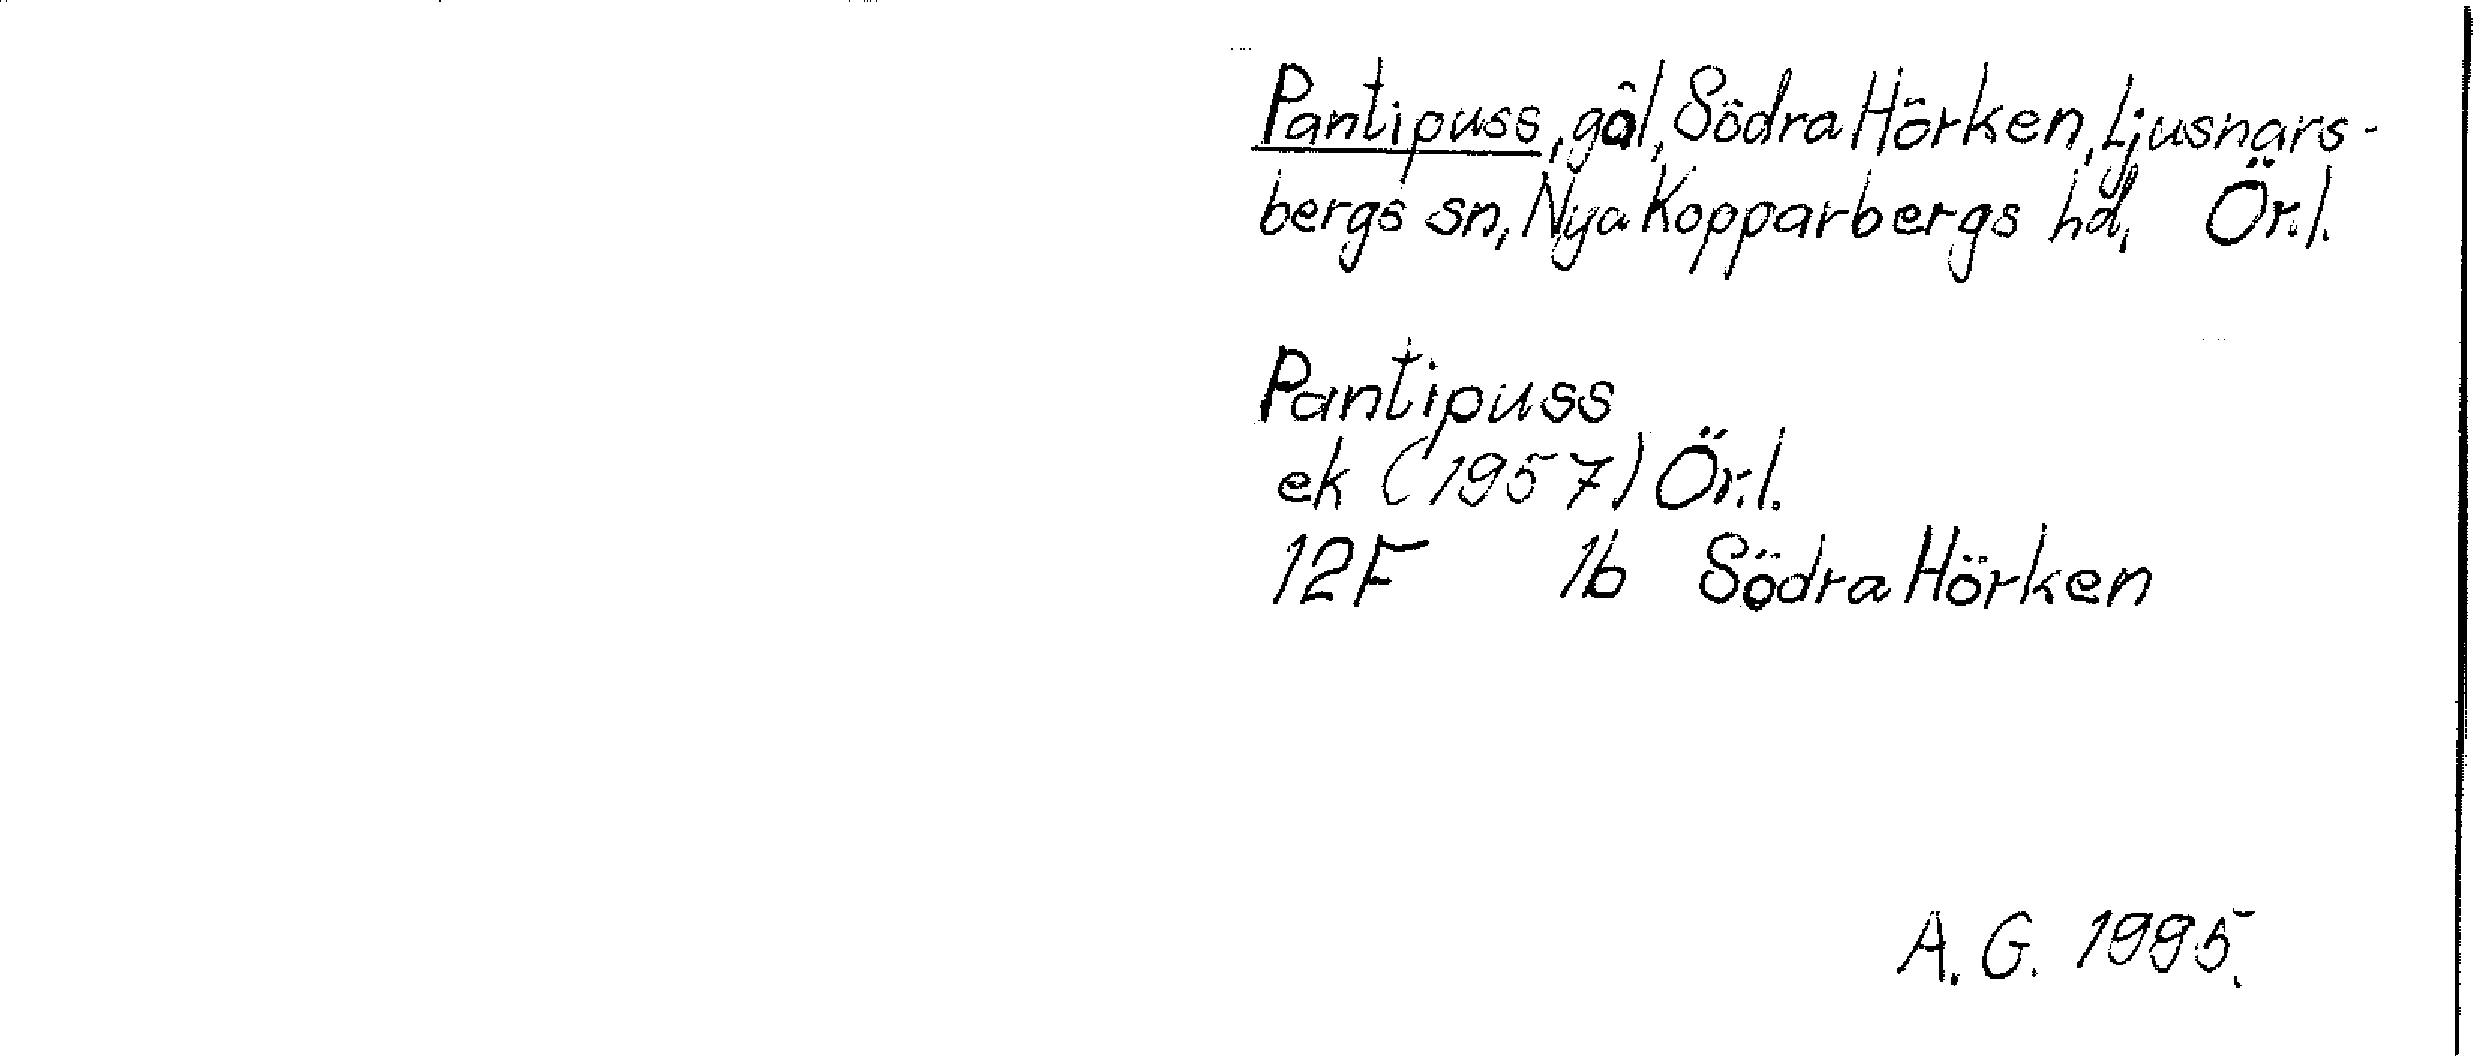 Pantipuss, gål, Södra Hörken, Ljusnars-
bergs sn, Nya Kopparbergs hd, Ör.l.
Pantipuss
ek (1957) Ör.l.
12F 1b Södra Hörken
A.G. 1995.